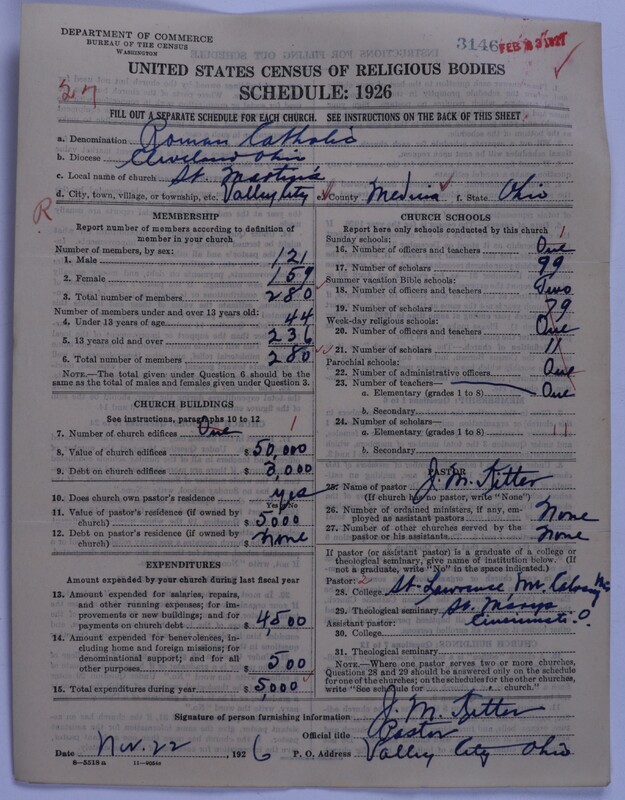 DEPARTMENT OF COMMERCE
BUREAU OF THE CENSUS
WASHINGTON
3146 FEB 23 1927
UNITED STATES CENSUS OF RELIGIOUS BODIES
SCHEDULE: 1926
37
FILL OUT A SEPARATE SCHEDULE FOR EACH CHURCH. SEE INSTRUCTIONS ON THE BACK OF THIS SHEET
a. Denomination Roman Catholic
b. Diocese Cleveland Ohio
c. Local name of church St. Martin's
d. City, town, village, or township, etc. Valley City e. County Medina f. State. Ohio
R
MEMBERSHIP
Report number of members according to definition of
member in your church
Number of members, by sex:
1. Male 121
2. Female 159
3. Total number of members 280
Number of members under and over 13 years old:
4. Under 13 years of age 44
5. 13 years old and over 236
6. Total number of members 280
NOTE.—The total given under Question 6 should be the
same as the total of males and females given under Question 3.
CHURCH BUILDINGS
See instructions, paragraphs 10 to 12
7. Number of church edifices One 1
8. Value of church edifices $ 50,000
9. Debt on church edifices $ 3,000
10. Does church own pastor's residence yes
Yes or No
11. Value of pastor's residence (if owned by
church) $ 5000
12. Debt on pastor's residence (if owned by
church) $ None
EXPENDITURES
Amount expended by your church during last fiscal year
13. Amount expended for salaries, repairs,
and other running expenses; for im-
provements or new buildings; and for
payments on church debt $ 4500
14. Amount expended for benevolences, in-
cluding home and foreign missions; for
denominational support; and for all
other purposes $ 500
15. Total expenditures during year $ 5,000
CHURCH SCHOOLS
Report here only schools conducted by this church
Sunday schools: 1
16. Number of officers and teachers One
17. Number of scholars 99
Summer vacation Bible schools:
18. Number of officers and teachers Two
19. Number of scholars 79
Week-day religious schools:
20. Number of officers and teachers One
21. Number of scholars 11
Parochial schools:
22. Number of administrative officers One
23. Number of teachers—
a. Elementary (grades 1 to 8) One
b. Secondary
24. Number of scholars—
a. Elementary (grades 1 to 8) 11
b. Secondary
PASTOR
25. Name of pastor J. M. Ritter
(If church has no pastor, write "None")
26. Number of ordained ministers, if any, em-
ployed as assistant pastors None
27. Number of other churches served by the
pastor or his assistants None
If pastor (or assistant pastor) is a graduate of a college or
theological seminary, give name of institution below. (If
not a graduate, write "No" in the space indicated.)
Pastor: 2
28. College St. Lawrence, Mt. Calvary Wis
29. Theological seminary St. Marys
Assistant pastor: Cincinnati. O.
30. College
31. Theological seminary
NOTE.—Where one pastor serves two or more churches,
Questions 28 and 29 should be answered only on the schedule
for one of the churches; on the schedules for the other churches,
write "See schedule for church."
Signature of person furnishing information J. M. Ritter
Official title Pastor
Date Nov. 22, 1926 P. O. Address Valley City Ohio
8-5518a